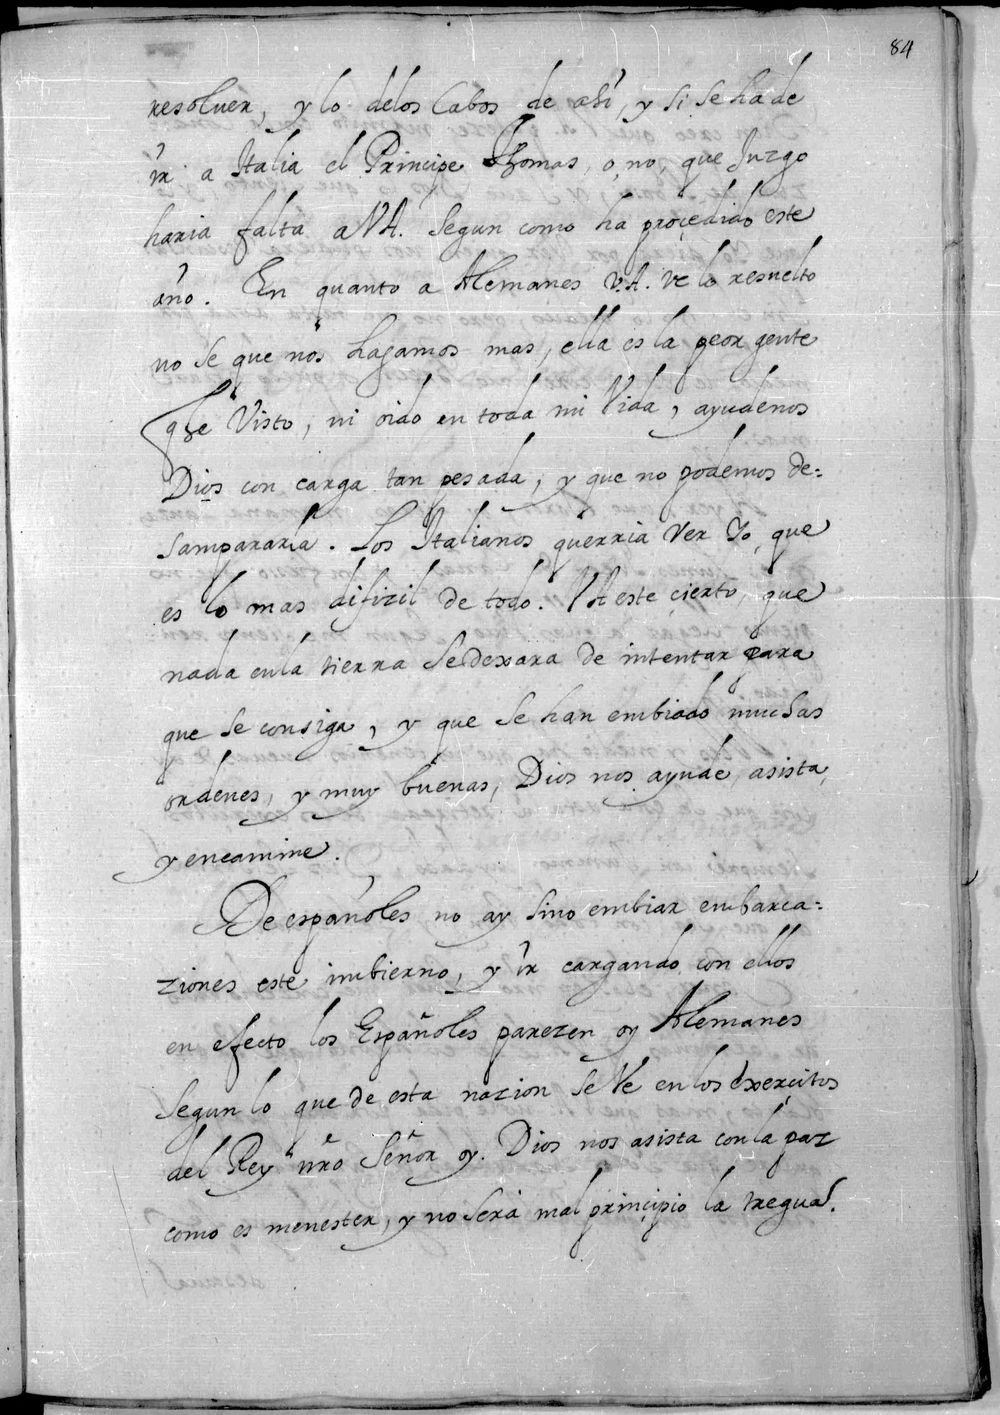 84
resolver, y lo delos Cabos de ahí, y si se ha de
ir a Italia el Principe Thomas, o no, que Juzgo
haria falta a VA. Segun como ha procedido este
año. En quanto a Alemanes V.A. ve lo resuelto
no se que nos hagamos mas, ella es la peor gente
que he Visto, ni oido en toda mi Vida, ayudenos
Dios con carga tan pesada, y que no podemos de=
sampararla. Los Italianos querria Ver Yo, que
es lo mas difizil de todo. VA este cierto, que
nada en la tierra se dexara de intentar para
que se consiga, y que se han embiado muchas
ordenes, y muy buenas, Dios nos ayude, asista,
y encamine.
De españoles no ay sino embiar embarca=
ziones este imbierno, y ir cargando con ellos
en efecto los Españoles parezen oy Alemanes
segun lo que de esta nazion se Ve en los exercitos
del Rey nro Señor oy. Dios nos asista con la paz
como es menester, y no será mal principio la tregua.